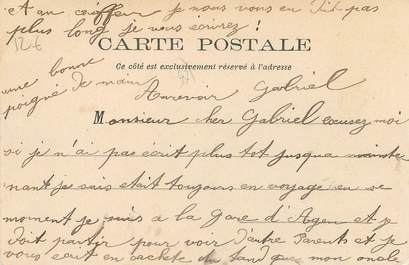 et au couffeur je nous vous en dit pas
plus long je vous écrirez !
12 €
CARTE POSTALE
Ce côté est exclusivement réservé à l'adresse
une bonne
poigné de main
Aurevoir Gabriel
Monsieur cher Gabriel excusez moi
si je n'ai pas écrit plus tot jusqua mainte
nant je suis etait toujours en voyage en se
moment je suis a la Gare d'Agen et je
doit partir pour voir d'autre Parents et je
vous ecrit en cachete du tand que mon oncle